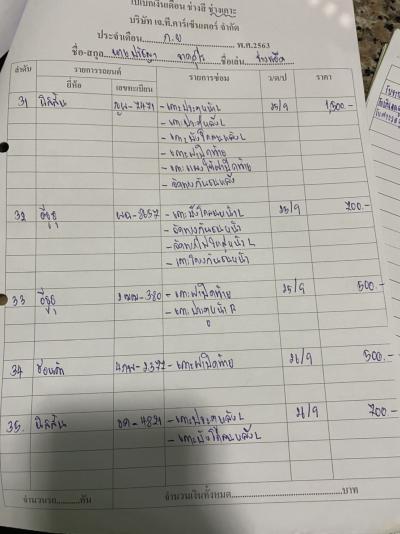 ใบเบิกเงินเดือน ช่างสี ช่างเคาะ
บริษัท เอ.ที.คาร์เซ็นเตอร์ จำกัด
ประจำเดือน ก.ย พ.ศ.2563
ชื่อ-สกุล นาย ชื่อเล่น
ลำดับ รายการรถยนต์ รายการซ่อม ว/ด/ป ราคา
ยี่ห้อ เลขทะเบียน
31 นิสสัน -7471 - เคาะประตูหน้า L 25/9 1,500.-
- เคาะประตูหลัง L
- เคาะบังโคลนหลัง L
- เคาะฝาปิดท้าย
- เคาะแผงใต้ฝาปิดท้าย
- ดัดคานกันชนหลัง
32 อีซูซุ ผฉ-8657 - เคาะบังโคลนหน้า L 25/9 700.-
- ดัดคานกันชนหน้า
- ดัดเบ้าไฟใหญ่หน้า L
- เคาะโครงกันชนหน้า
33 อีซูซุ 2ฒฌ-380 - เคาะฝาปิดท้าย 25/9 500.-
- เคาะประตูหน้า R
34 ฮอนด้า 4กฬ-2377 - เคาะฝาปิดท้าย 26/9 500.-
35. นิสสัน ขค-4821 - เคาะประตูหลัง L 26/9 700.-
- เคาะบังโคลนหลัง L
จำนวนรถ........คัน จำนวนเงินทั้งหมด........บาท